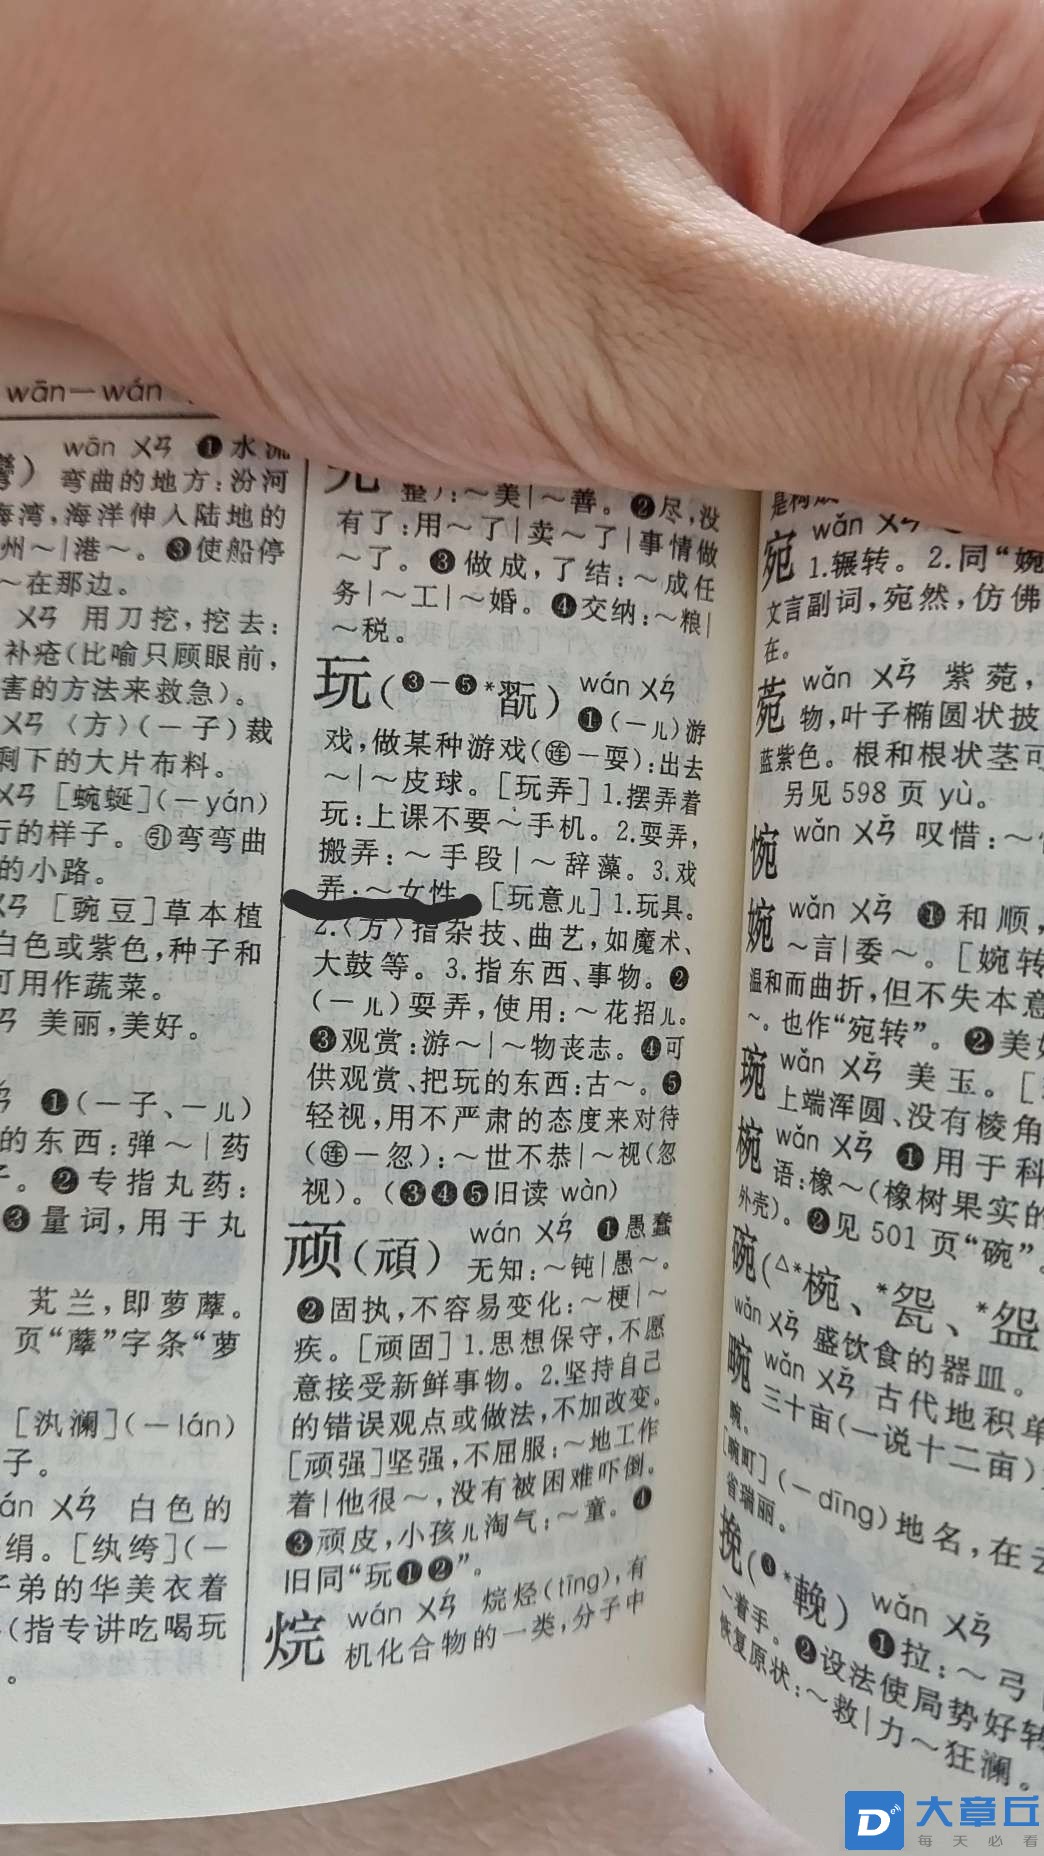 wān—wán
wān ㄨㄢ ❶水流
弯曲的地方:汾河
海湾,海洋伸入陆地的
州～|港～。❸使船停
～在那边。
ㄨㄢ 用刀挖,挖去:
补疮(比喻只顾眼前,
害的方法来救急)。
ㄨㄢ〈方〉(一子)裁
剩下的大片布料。
ㄨㄢ [蜿蜒](—yán)
行的样子。㊇弯弯曲
的小路。
ㄨㄢ [豌豆]草本植
白色或紫色,种子和
可用作蔬菜。
ㄢ 美丽,美好。
❶(一子、一儿)
的东西:弹～|药
。❷专指丸药:
❸量词,用于丸
芄兰,即萝藦。
页“藦”字条“萝
[汍澜](—lán)
子。
án ㄨㄢˊ 白色的
绢。[纨绔](一
子弟的华美衣着
(指专讲吃喝玩
。
完
整):～美|～善。❷尽,没
有了:用～了|卖～了|事情做
～了。❸做成,了结:～成任
务|～工|～婚。❹交纳:～粮|
～税。
玩(❸—❺*翫) wán ㄨㄢˊ
❶(一儿)游
戏,做某种游戏(连—耍):出去
～|～皮球。[玩弄]1.摆弄着
玩:上课不要～手机。2.耍弄,
搬弄:～手段|～辞藻。3.戏
弄:～女性。[玩意儿]1.玩具。
2.〈方〉指杂技、曲艺,如魔术、
大鼓等。3.指东西、事物。❷
(一儿)耍弄,使用:～花招儿。
❸观赏:游～|～物丧志。❹可
供观赏、把玩的东西:古～。❺
轻视,用不严肃的态度来对待
(连—忽):～世不恭|～视(忽
视)。(❸❹❺旧读 wàn)
顽(頑) wán ㄨㄢˊ ❶愚蠢
无知:～钝|愚～。
❷固执,不容易变化:～梗|～
疾。[顽固]1.思想保守,不愿
意接受新鲜事物。2.坚持自己
的错误观点或做法,不加改变。
[顽强]坚强,不屈服:～地工作
着|他很～,没有被困难吓倒。
❸顽皮,小孩儿淘气:～童。❹
旧同“玩❶❷”。
烷 wán ㄨㄢˊ 烷烃(tīng),有
机化合物的一类,分子中
是构成
宛 wǎn ㄨㄢˇ
1.辗转。2.同“婉
文言副词,宛然,仿佛
在。
菀 wǎn ㄨㄢˇ 紫菀,
物,叶子椭圆状披
蓝紫色。根和根状茎可
另见 598 页 yù。
惋 wǎn ㄨㄢˇ 叹惜:～
婉 wǎn ㄨㄢˇ ❶和顺,
～言|委～。[婉转
温和而曲折,但不失本意
～。也作“宛转”。❷美好
琬 wǎn ㄨㄢˇ 美玉。[
上端浑圆、没有棱角
椀 wǎn ㄨㄢˇ ❶用于科
语:橡～(橡树果实的
外壳)。❷见 501 页“碗”。
碗(△*椀、*㼝、*盌
wǎn ㄨㄢˇ 盛饮食的器皿。
畹 wǎn ㄨㄢˇ 古代地积单
三十亩(一说十二亩)
畹。
[畹町](—dīng)地名,在云
省瑞丽。
挽(❸*輓) wǎn ㄨㄢˇ
❶拉:～弓
～着手。❷设法使局势好转
恢复原状:～救|力～狂澜。
大章丘
每天必看